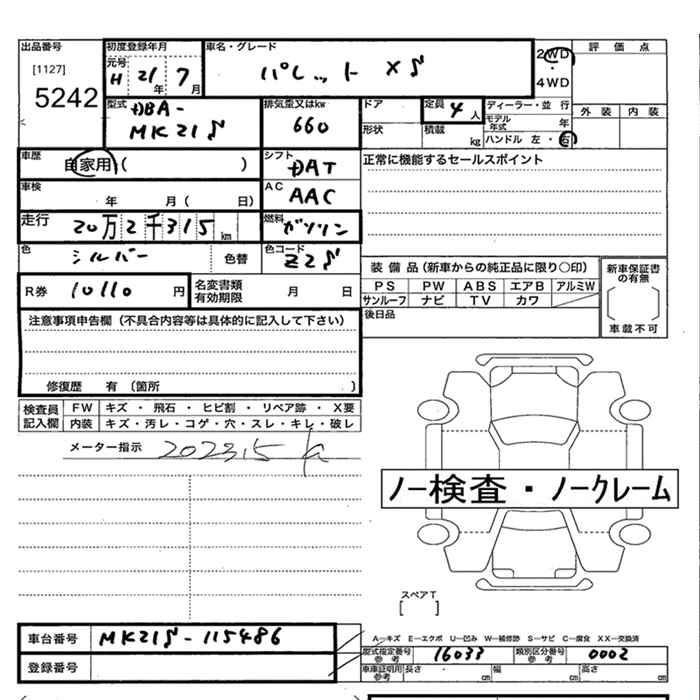 出品番号 初度登録年月 車名・グレード 評価点
[1127] 元号 H 21年 7月 パレット XS 2WD・4WD
5242
型式 DBA-MK21S 排気量又はkw 660 ドア 定員 4人 ディーラー・並行 外装 内装
形状 積載 kg モデル年式 年
ハンドル 左・右
車歴 自家用( ) シフト DAT 正常に機能するセールスポイント
車検 年 月( 日) AC AAC
走行 20万2千315km 燃料 ガソリン
色 シルバー 色替 色コード Z2S
装備品(新車からの純正品に限り〇印) 新車保証書の有無
PS PW ABS エアB アルミW
サンルーフ ナビ TV カワ
車載不可
R券 10110円 名変書類有効期限 月 日
後日品
注意事項申告欄(不具合内容等は具体的に記入して下さい)
修復歴 有(箇所 )
検査員記入欄 FW キズ・飛石・ヒビ割・リペア跡・X要
内装 キズ・汚レ・コゲ・穴・スレ・キレ・破レ
メーター指示 202315
ノー検査・ノークレーム
スペアT
[ ]
A―キズ E―エクボ U―凹み W―補修跡 S―サビ C―腐食 XX―交換済
車台番号 MK21S-115486
型式指定番号 参考 16033 類別区分番号 参考 0002
登録番号
車車証明用 参考 長さ cm 幅 cm 高さ cm